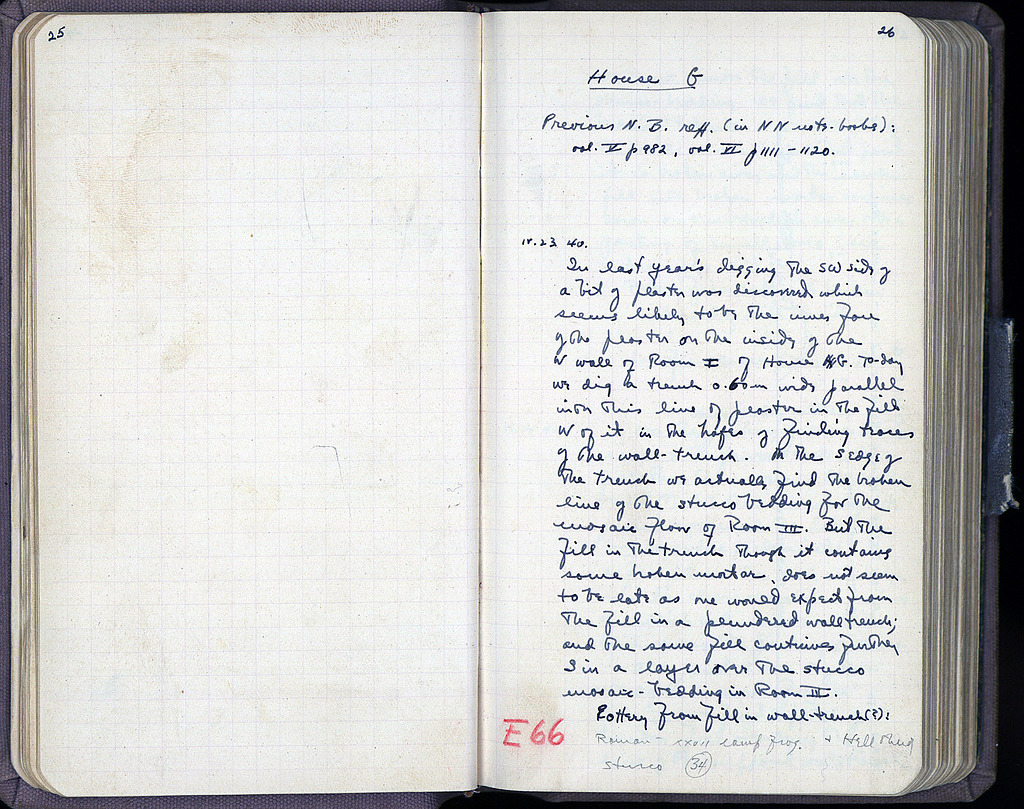 25
26
House G
Previous N. B. reff. (in NN note-books):
vol. V p 982, vol. VI p 1111 - 1120.
IV. 23 40.
In last year's digging the SW side of
a bit of plaster was discovered which
seems likely to be the inner face
of the plaster on the inside of the
W wall of Room I of House G. To-day
we dig a trench 0.60m wide parallel
with this line of plaster in the fill
W of it in the hopes of finding traces
of the wall-trench. In the S edge of
the trench we actually find the broken
line of the stucco bedding for the
mosaic floor of Room III. But the
fill in the trench though it contains
some broken mortar, does not seem
to be late as one would expect from
the fill in a plundered wall trench;
and the same fill continues further
S in a layer over the stucco
mosaic-bedding in Room III.
Pottery from fill in wall-trench(?):
Roman - XXVII lamp frag. + Hell
stucco 34
E66